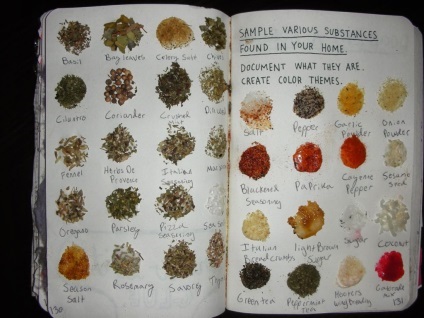 Basil Bay leaves Celery Salt
Cilantro Coriander Crushed
Fennel Herbs De Italian
Provence Seasoning
Oregano Parsley Pizza
Seasoning
Season Rosemary Savory
Salt
130
SAMPLE VARIOUS SUBSTANCES
FOUND IN YOUR HOME.
DOCUMENT WHAT THEY ARE.
CREATE COLOR THEMES.
Salt Pepper Garlic Onion
Powder Powder
Blackened Paprika Cayenne Sesame
Seasoning Pepper Seed
Italian light Brown Sugar Coconut
Breadcrumbs Sugar
Green tea Peppermint Hooters
Tea Wing Breading
131